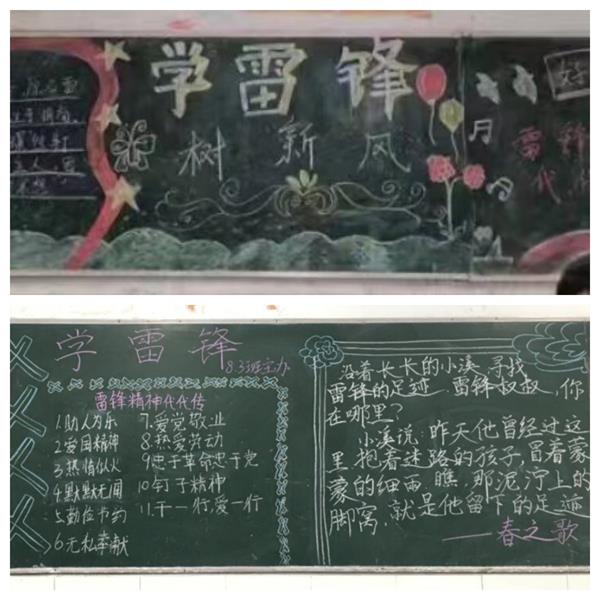 学雷锋
树新风
月
好
雷锋
代
学雷锋
8.3班主办
雷锋精神代代传
1.助人为乐
2.爱国精神
3.热情似火
4.默默无闻
5.勤俭节约
6.无私奉献
7.爱党敬业
8.热爱劳动
9忠于革命忠于党
10.钉子精神
11.干一行,爱一行
沿着长长的小溪,寻找
雷锋的足迹,雷锋叔叔,你
在哪里?
小溪说,昨天他曾经过这
里,抱着迷路的孩子,冒着蒙
蒙的细雨。瞧,那泥泞上的
脚窝,就是他留下的足迹
——春之歌